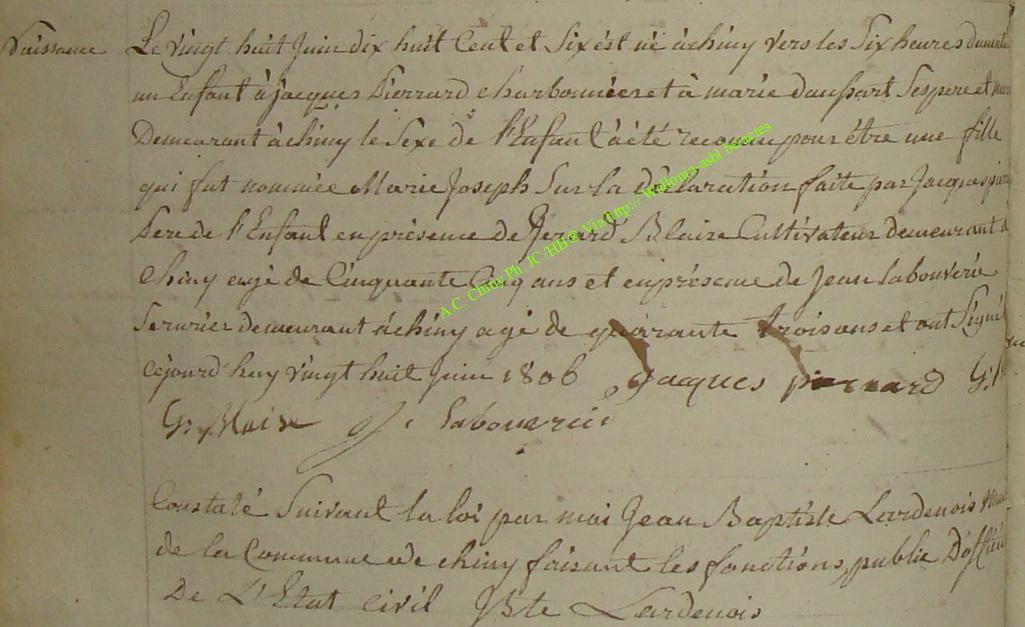 Naissance
Le vingt huit Juin dix huit Cent et Six ést né àchiny vers les Six heures du matin
un Enfant à jacques Pierrard charbonnier et à marie daufsart Ses pere et mere
Demeurant àchiny le Sexe de l'Enfant àété reconnu pour être une fille
qui fut nommée Marie Joseph Sur la déclaration faite par Jacques
Pere de l'Enfant en présence de Gerard Blaise Cultivateur demeurant à
Chiny agé de Cinquante Cinq ans et en présence de Jean Labouverie
Serurier demeurant àchiny agé de quarante trois ans et ont Signé
cejourd huy vingt huit Juin 1806 Jacques pierrard
G: Blaise J: Labouverie
Constaté Suivant la loi par moi Jean Baptiste Lardenois
de la Commune de chiny faisant les fonctions public D'officier
De L'Etat civil JBte Lardenois
A.C. Chiny Ph. JC /HB © Via http:// Wallonia-asbl.be/actes